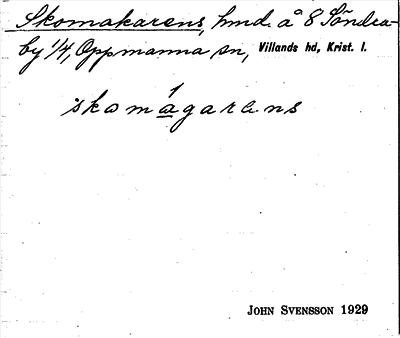 Skomakarens, hmd. å 8 Söndra-
by 1/4, Oppmanna sn, Villands hd, Krist. l.
skomágarens
JOHN SVENSSON 1929